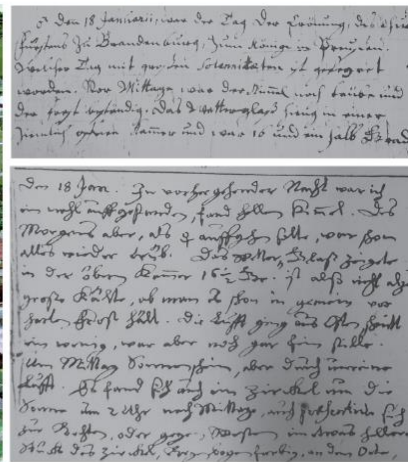 den 18 Januarii, war der Tag der Crönung, des Chur
fürstens zu Brandenburg, zum Könige in Preussen.
welcher Tag mit grossen Solenniteten ist gefeyret
worden. Vor Mittage war der Himmel noch trübe und
der frost beständig. Das Wetterglass hieng in einer
ziemlich offenen Kammer und war 16 und ein halb Grad
den 18 Jan. In vorhergehender Nacht war ich
ein mahl auffgestanden, fand hellen Himmel. Des
Morgens aber, als ♀ auffgehen solte, war schon
alles wieder trüb. Das Wetter Glass zeigete
in der obern Kammer 16 ½ Gr. ist also nicht alzu
grosse Kälte, ob man es schon in gemein vor
harten frost hält. die Lufft ging aus Osten,
ein wenig, war aber noch gar fein stille.
Um Mittag Sonnenschein, aber durch unreine
Lufft. Es fand sich auch ein Zirckel um die
Sonne um 2 Uhr nach Mittage, auch sich
zur Rechten, oder gegen Westen ein etwas hellers
Stück des Zirckels, Regenbogen farbig, an dem Orte,